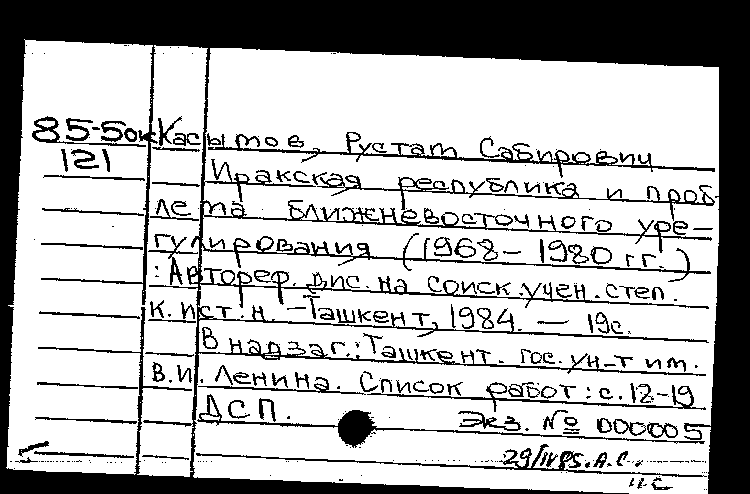 85-5ок Касымов, Рустам Сабирович
121
Иракская республика и проб-
лема ближневосточного уре-
гулирования (1968-1980 гг.)
: Автореф. дис. на соиск. учен. степ.
к. ист. н. - Ташкент, 1984. - 19с.
В надзаг.: Ташкент. гос. ун-т им.
В.И. Ленина. Список работ: с. 18-19
ДСП. Экз. № 000005
29/IV85. А.С.